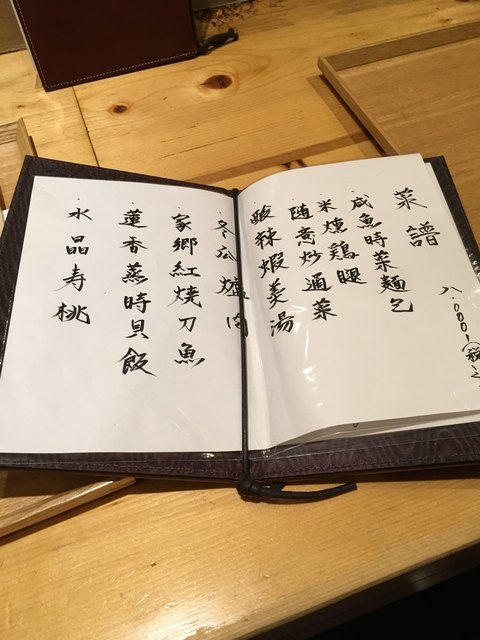 菜譜
八.000
咸魚時菜麺包
米燻鶏腿
随意炒通菜
酸辣蝦羹湯
冬瓜爐肉
家郷紅焼刀魚
蓮香蒸時貝飯
水晶寿桃